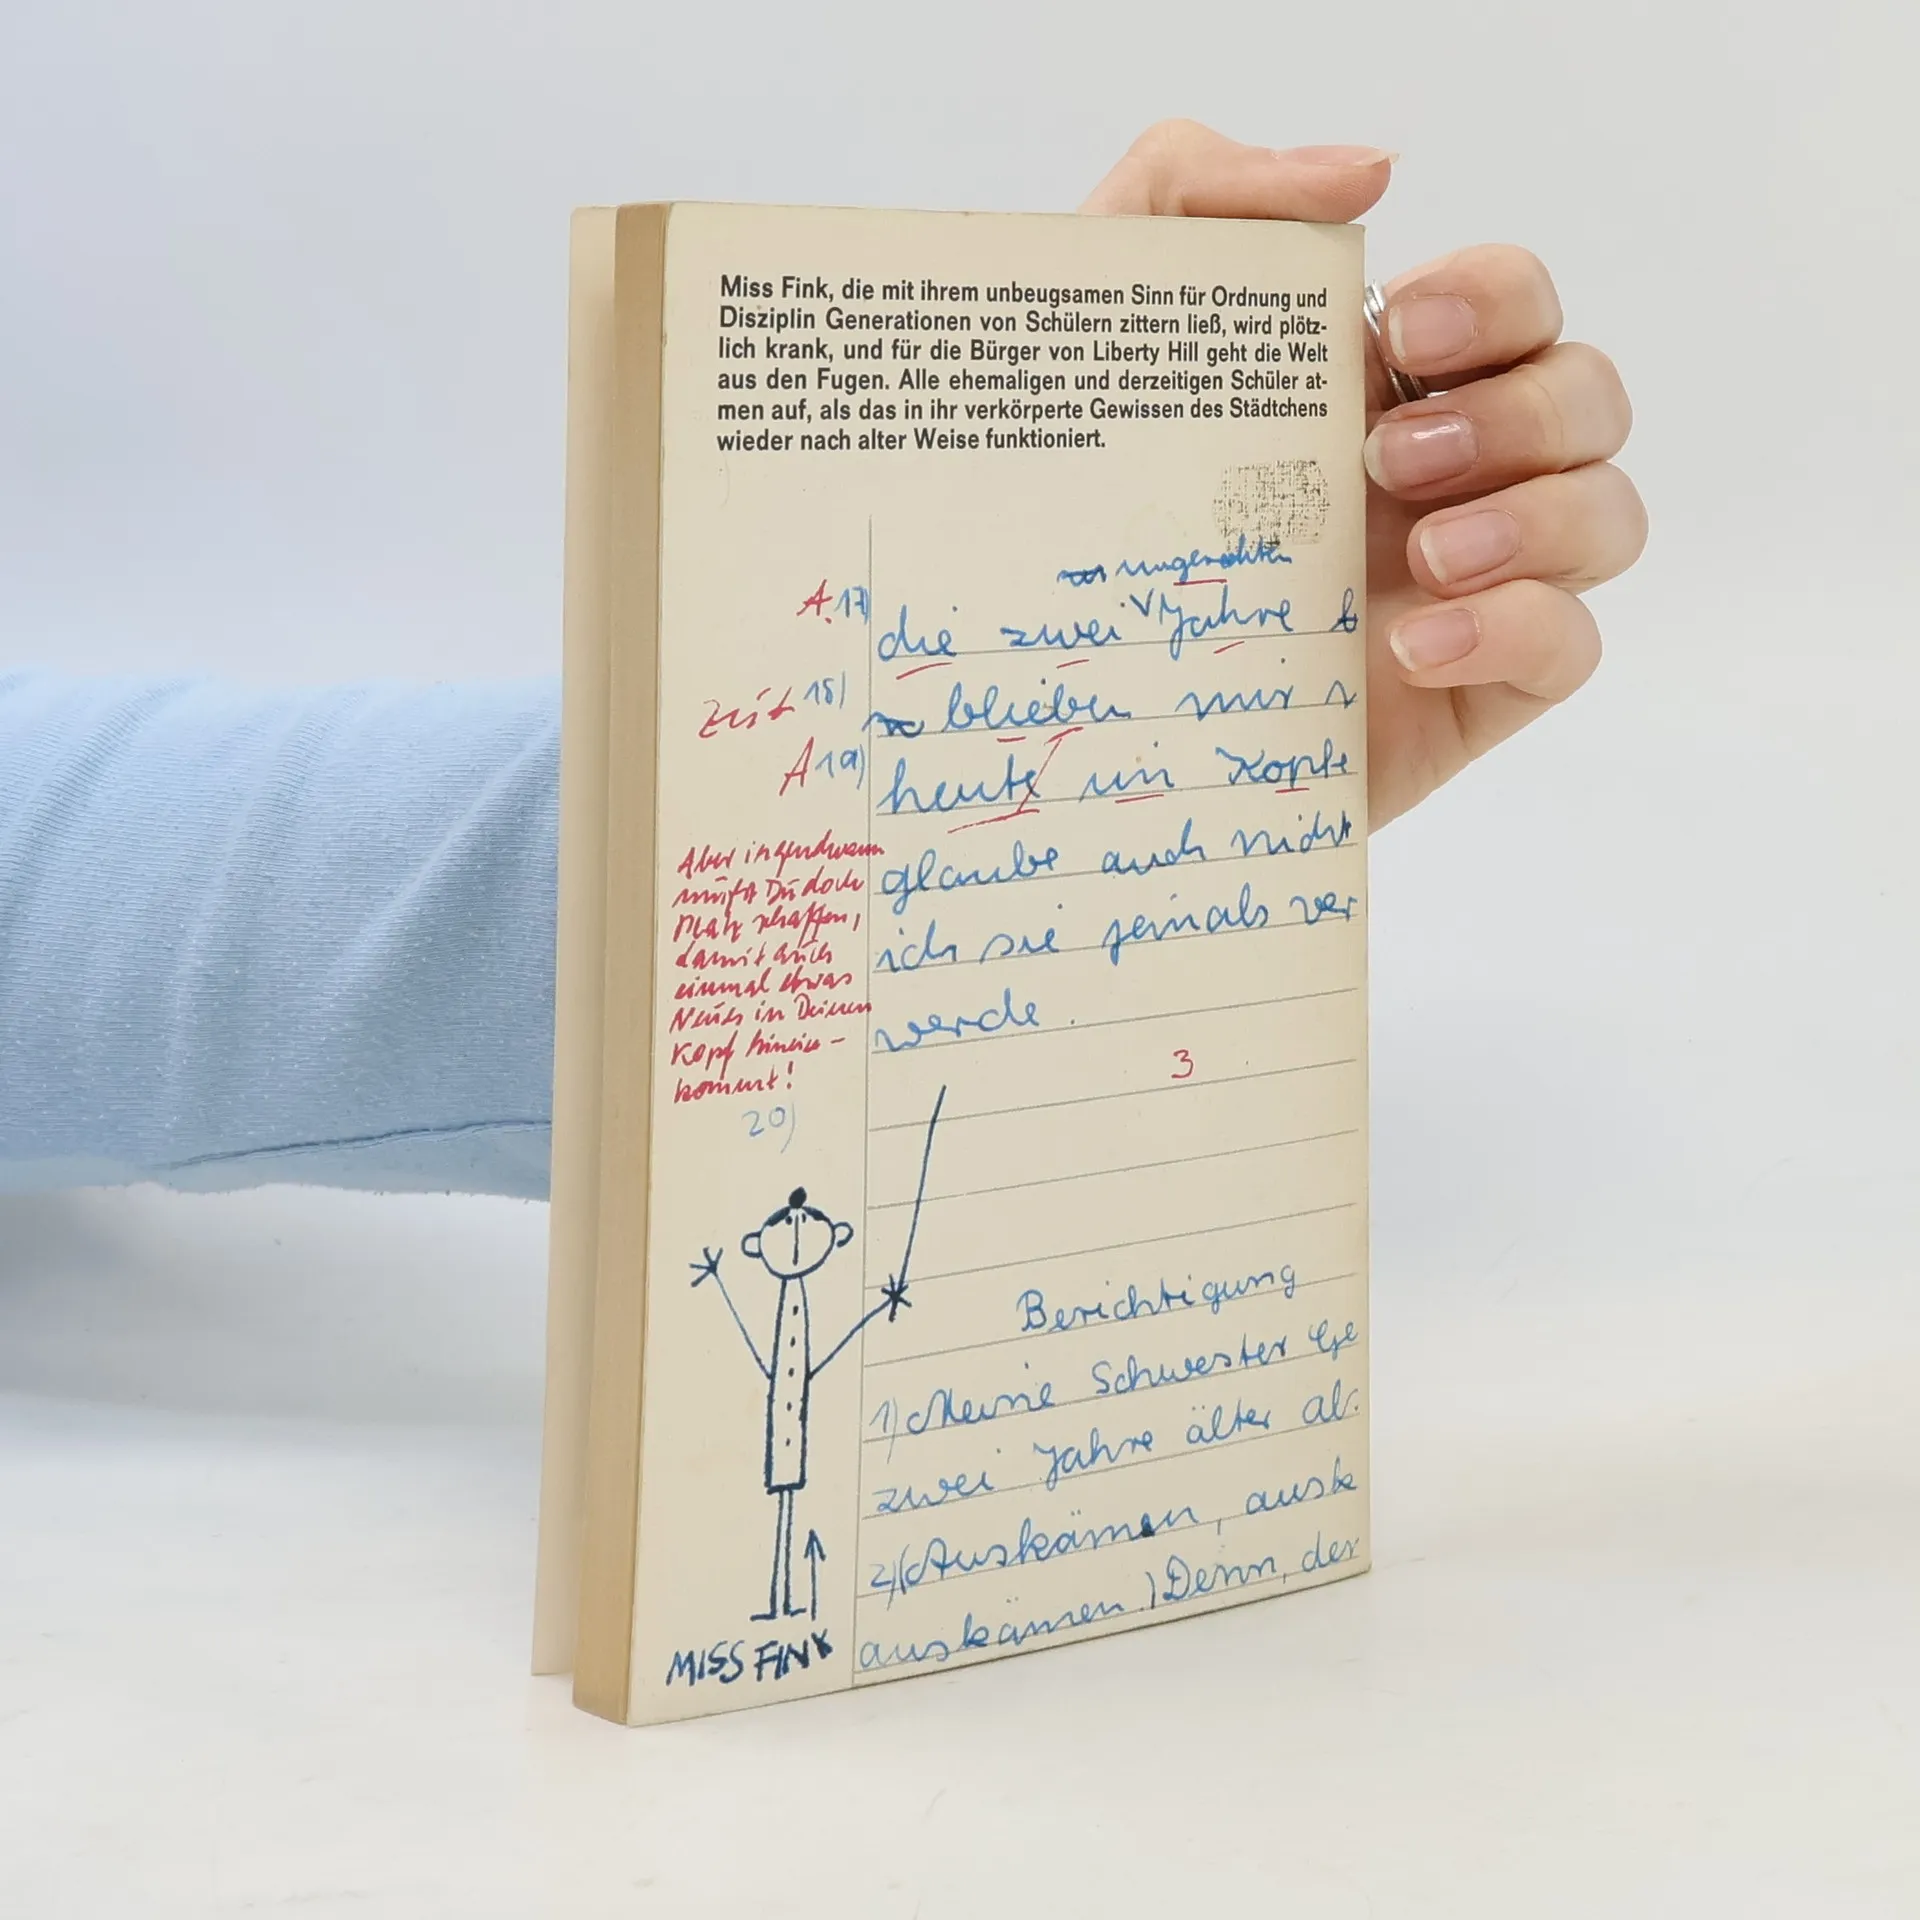 Miss Fink, die mit ihrem unbeugsamen Sinn für Ordnung und
Disziplin Generationen von Schülern zittern ließ, wird plötz-
lich krank, und für die Bürger von Liberty Hill geht die Welt
aus den Fugen. Alle ehemaligen und derzeitigen Schüler at-
men auf, als das in ihr verkörperte Gewissen des Städtchens
wieder nach alter Weise funktioniert.
A. 17)
die zwei Jahre b
Zeit 18)
blieben mir
A 19)
heute im Kopfe
glaube auch nicht
ich sie jemals ver
werde.
Aber irgendwann
mußt Du doch
Platz schaffen,
damit auch
einmal etwas
Neues in Deinen
Kopf hinein-
kommt!
20)
3
Berichtigung
1) Meine Schwester Ge
zwei Jahre älter al
2) (Auskämen, ausk
auskämen.) Denn, der
MISS FINK